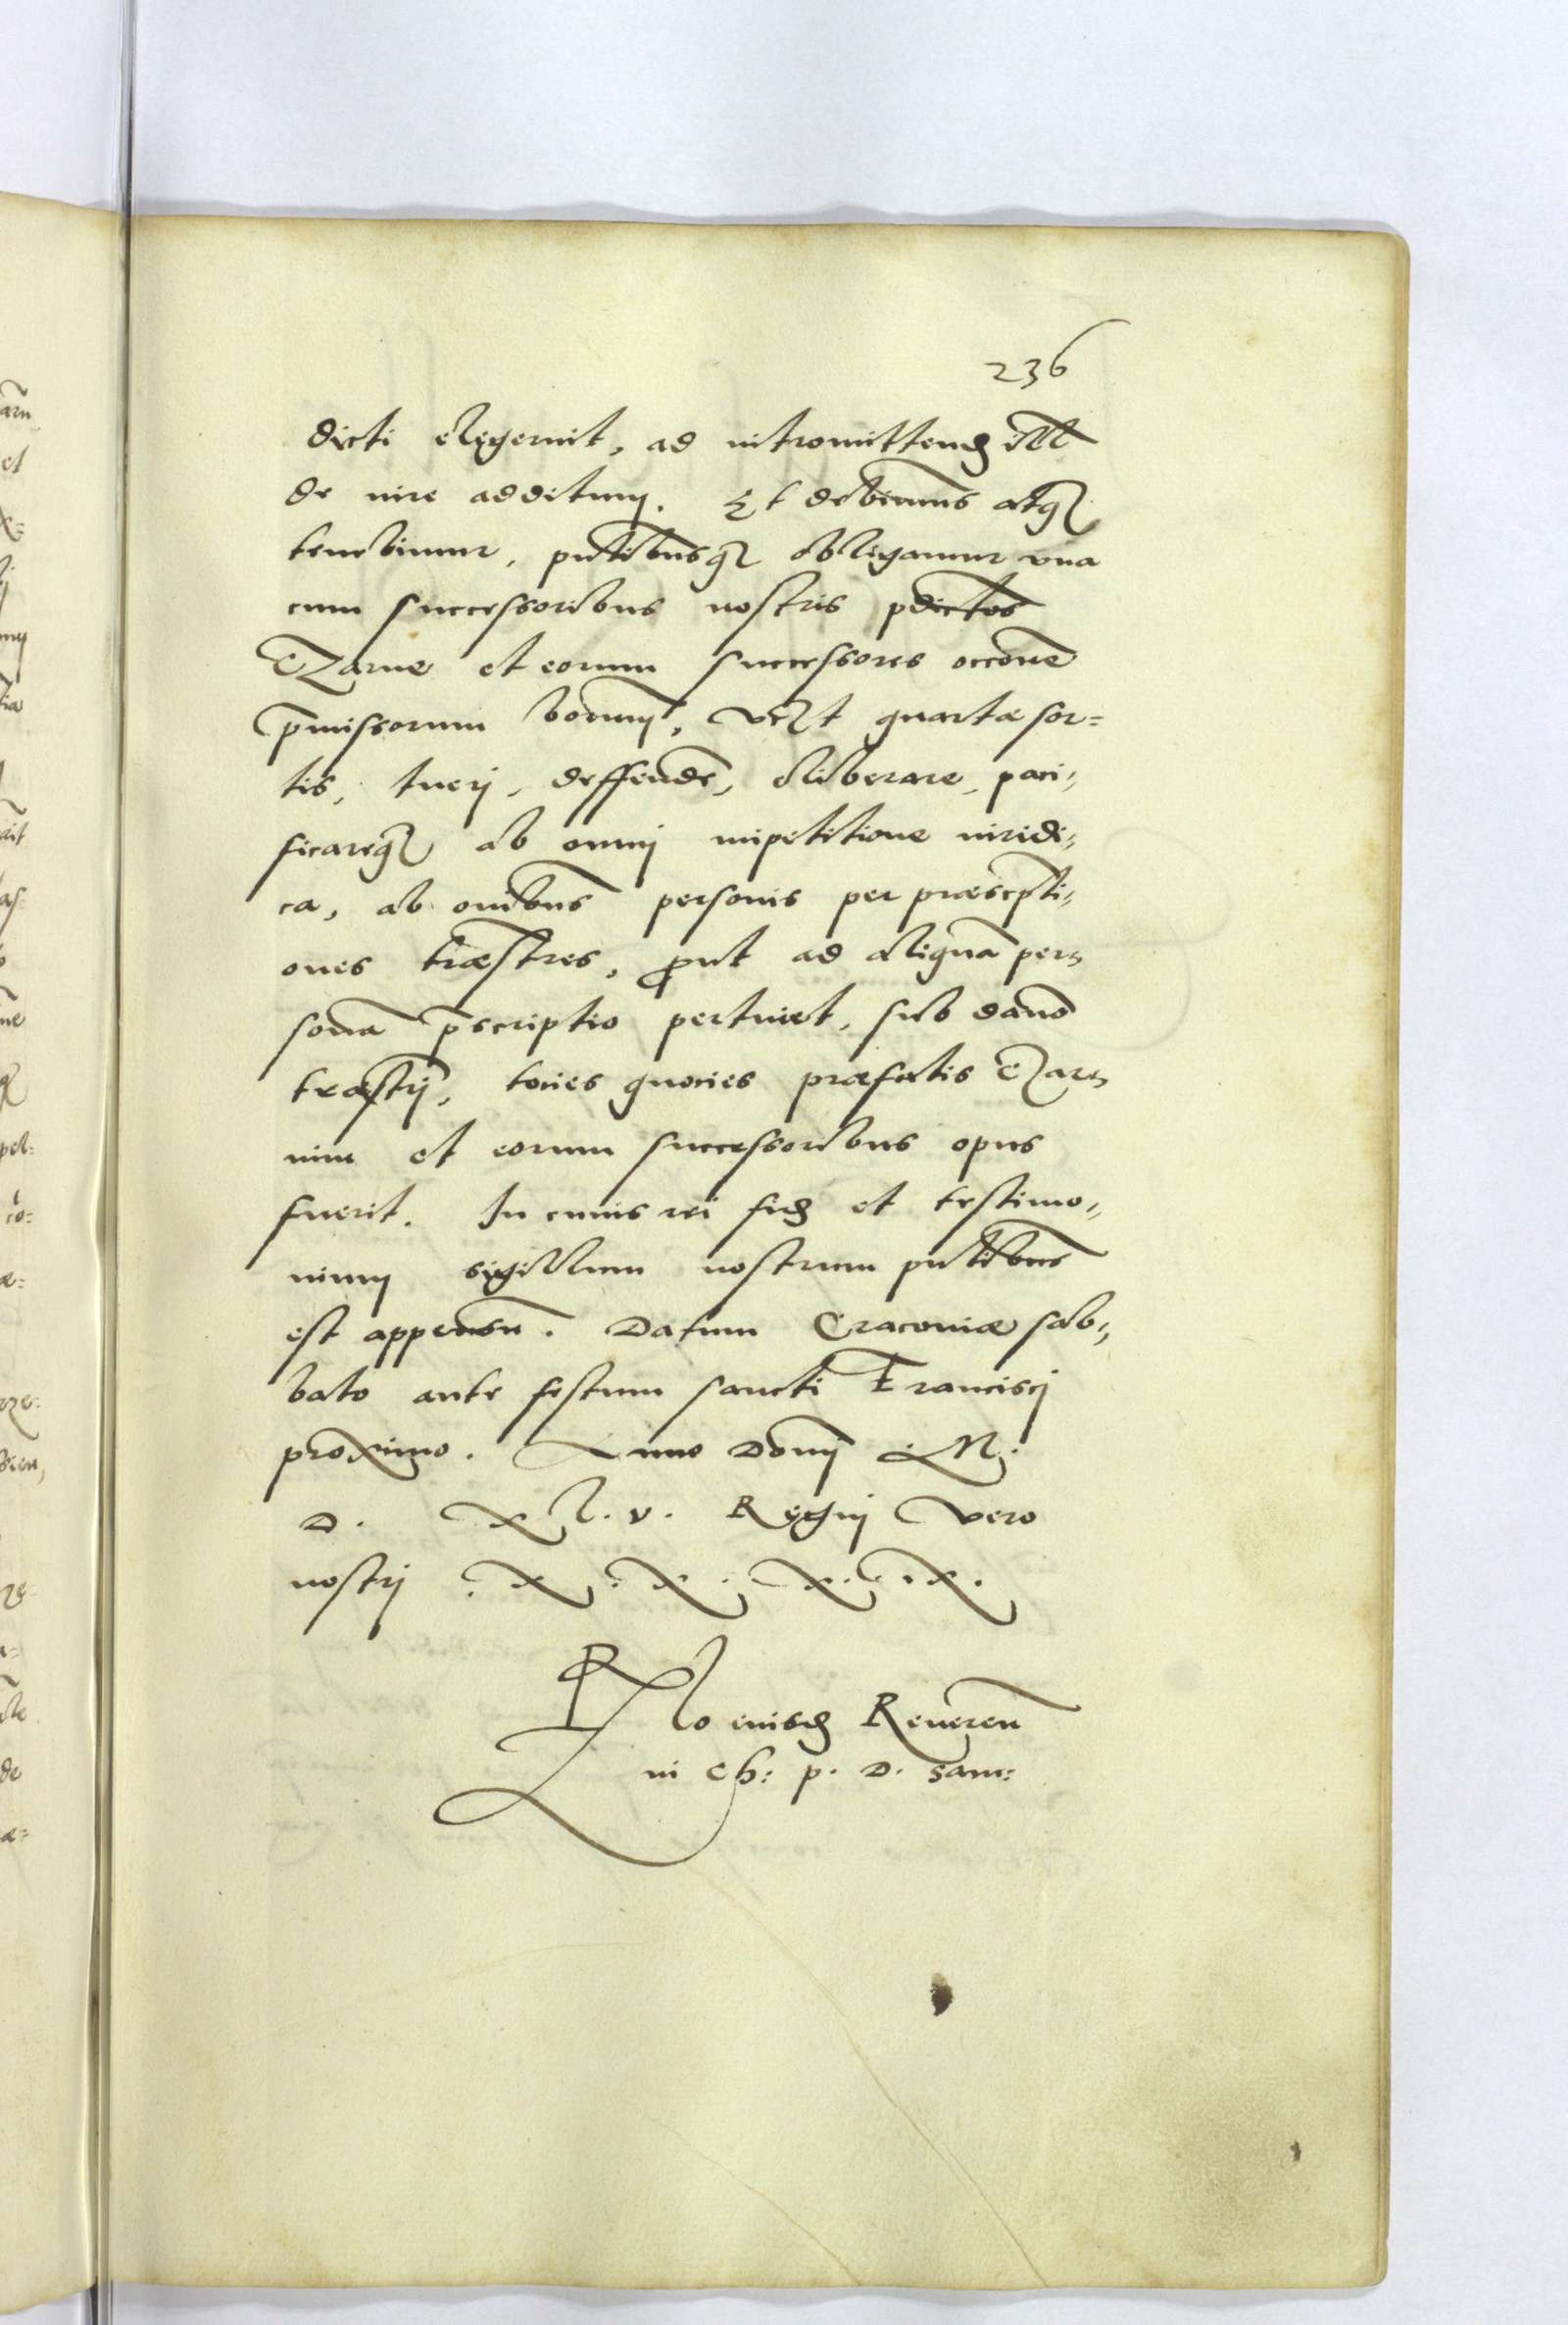 236
dicti elegerint, ad intromittend̃ ill̃
de iure additum. Et debimus atq̃
tenebimur, pn̄tibusq̃ obligamur vna
cum successoribus nostris p̄dictos
Czarne et eorum successores occõne
p̄missorum bonoru̅, vczt quartæ sor=
tis, tuerj, deffendẽ, eliberare, paci,,
ficareq̃ ab omnj impetitione iuridi,,
ca, ab oni̅bus personis per præscpti,,
ones tr̃æstres, ꝓut ad aliqua̅ per,,
sona̅ p̄scriptio pertinet, sub da̅no
tr̃æstrj, tocies quocies præfatis Czar,,
nim et eorum successoribus opus
fuerit. In cuius rei fid̃ et testimo,,
nium sigillum nostrum pn̄tibus
est appensu̅. Datum Cracoviæ sab,,
bato ante festum sanctj Franciscj
proximo. Anno Domj M.
D. XL.V. Regnj vero
nostrj .X.X.X.IX.
Rl̃o eiusd̃ Reueren̄
in Ch: p. D. Sam: